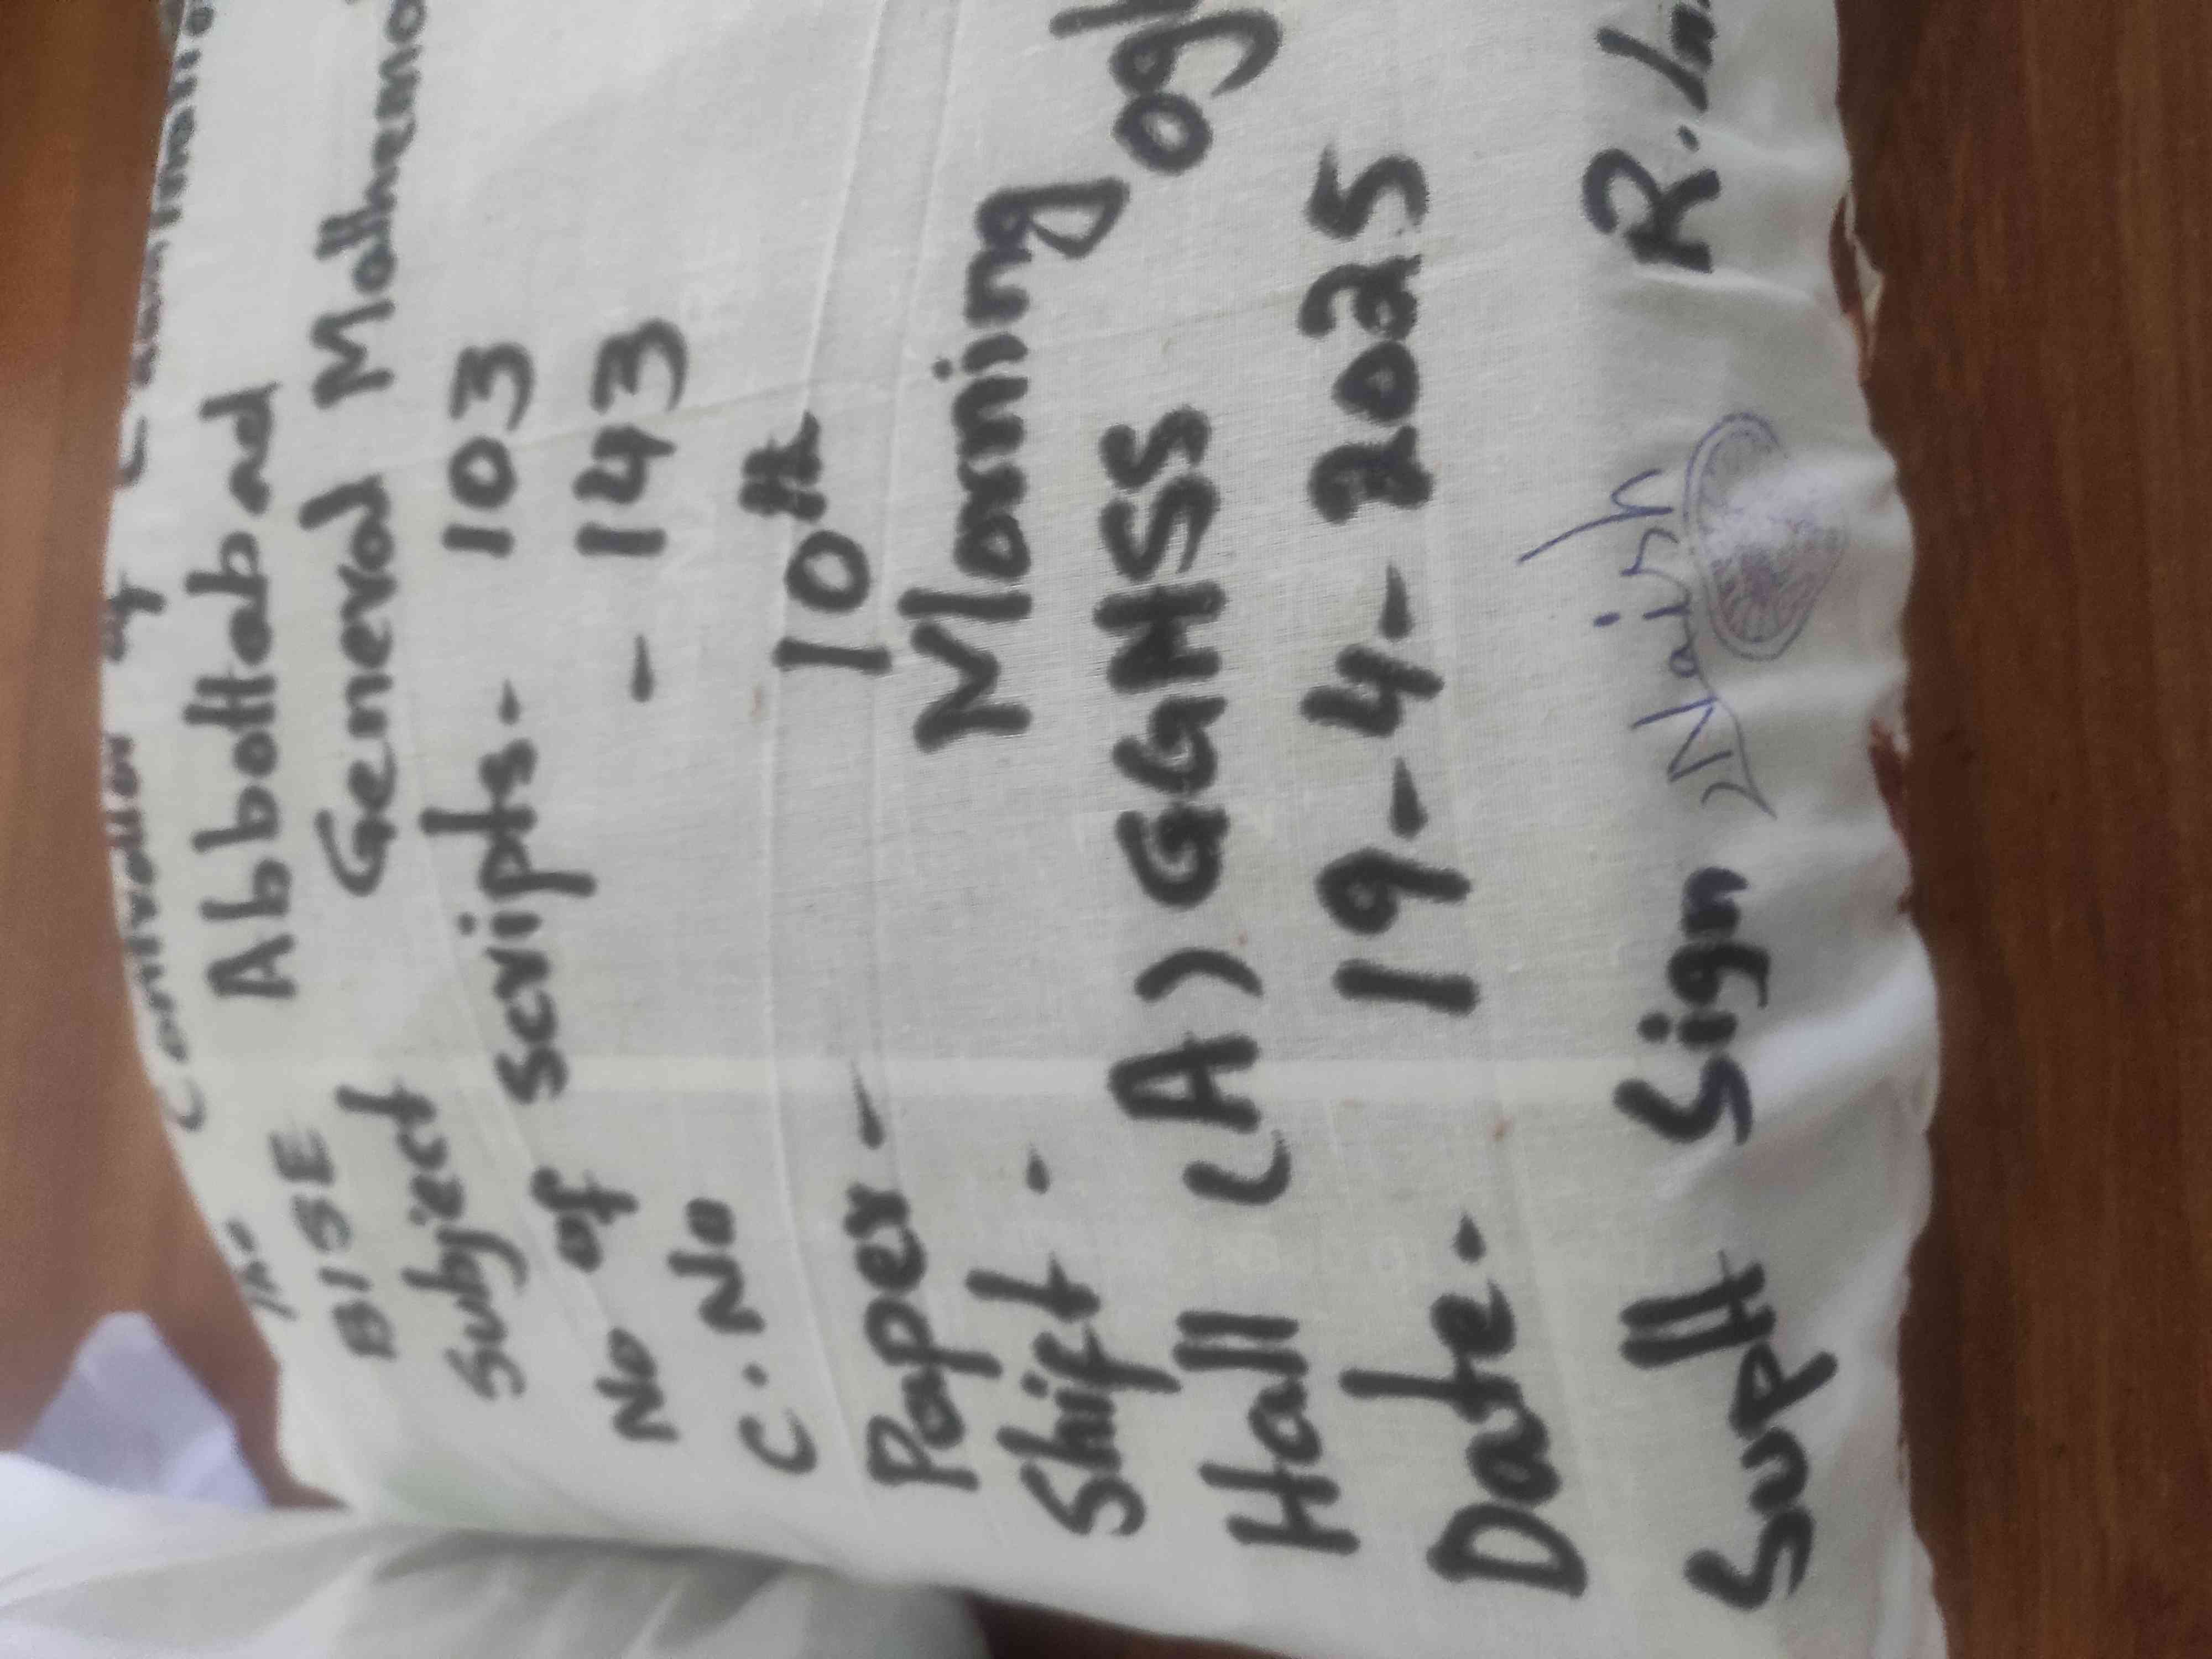 To- Controller of Examinatio
BISE Abbottabad
Subject General Mathema
No of scripts- 103
C. No - 143
Paper- 10th
Shift - Morning
Hall (A) GGHSS
Date- 19-4-2025
Suptt Sign R.